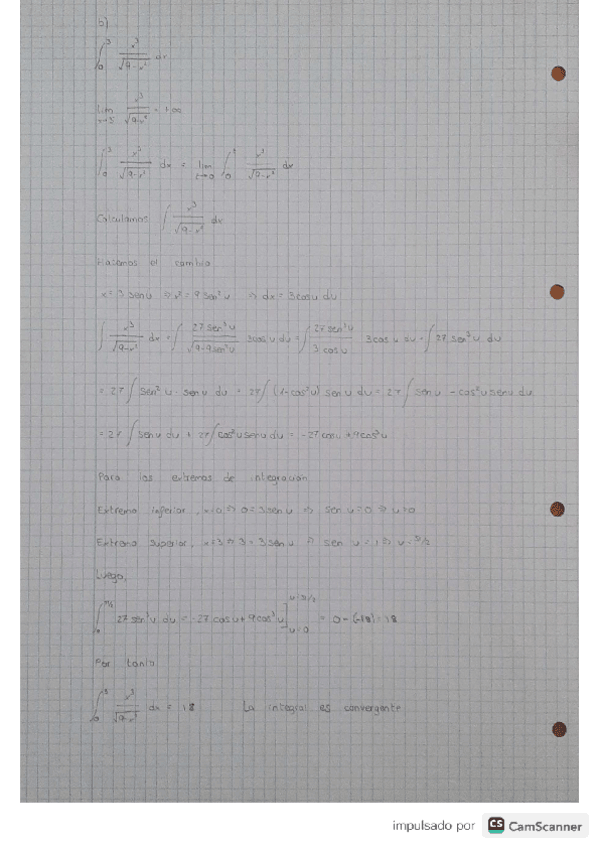 b)
∫₀³ x³/√(9-x²) dx
lim x→3 x³/√(9-x²) = +∞
∫₀³ x³/√(9-x²) dx = lim ∫₀ x³/√(9-x²) dx
Calculamos ∫ x³/√(9-x²) dx
Hacemos el cambio
x = 3 sen u ⇒ x² = 9 sen² u ⇒ dx = 3 cos u du
∫ x³/√(9-x²) dx = ∫ 27 sen³ u/√(9-9sen² u) 3cos u du = ∫ 27 sen³ u/3 cos u 3 cos u du = ∫ 27 sen³ u du
= 27 ∫ sen² u · sen u du = 27 ∫ (1-cos² u) sen u du = 27 ∫ sen u - cos² u sen u du
= 27 ∫ sen u du + 27 ∫ cos² u sen u du = -27 cos u + 9 cos³ u
Para los extremos de integración
Extremo inferior, x=0 ⇒ 0=3 sen u ⇒ sen u=0 ⇒ u=0
Extremo superior, x=3 ⇒ 3=3 sen u ⇒ sen u=1 ⇒ u=π/2
Luego,
∫₀^(π/2) 27 sen³ u du = -27 cos u + 9 cos³ u ] u=π/2 u=0 = 0-(-18) = 18
Por tanto
∫₀³ x³/√(9-x²) dx = 18 La integral es convergente
impulsado por CS CamScanner